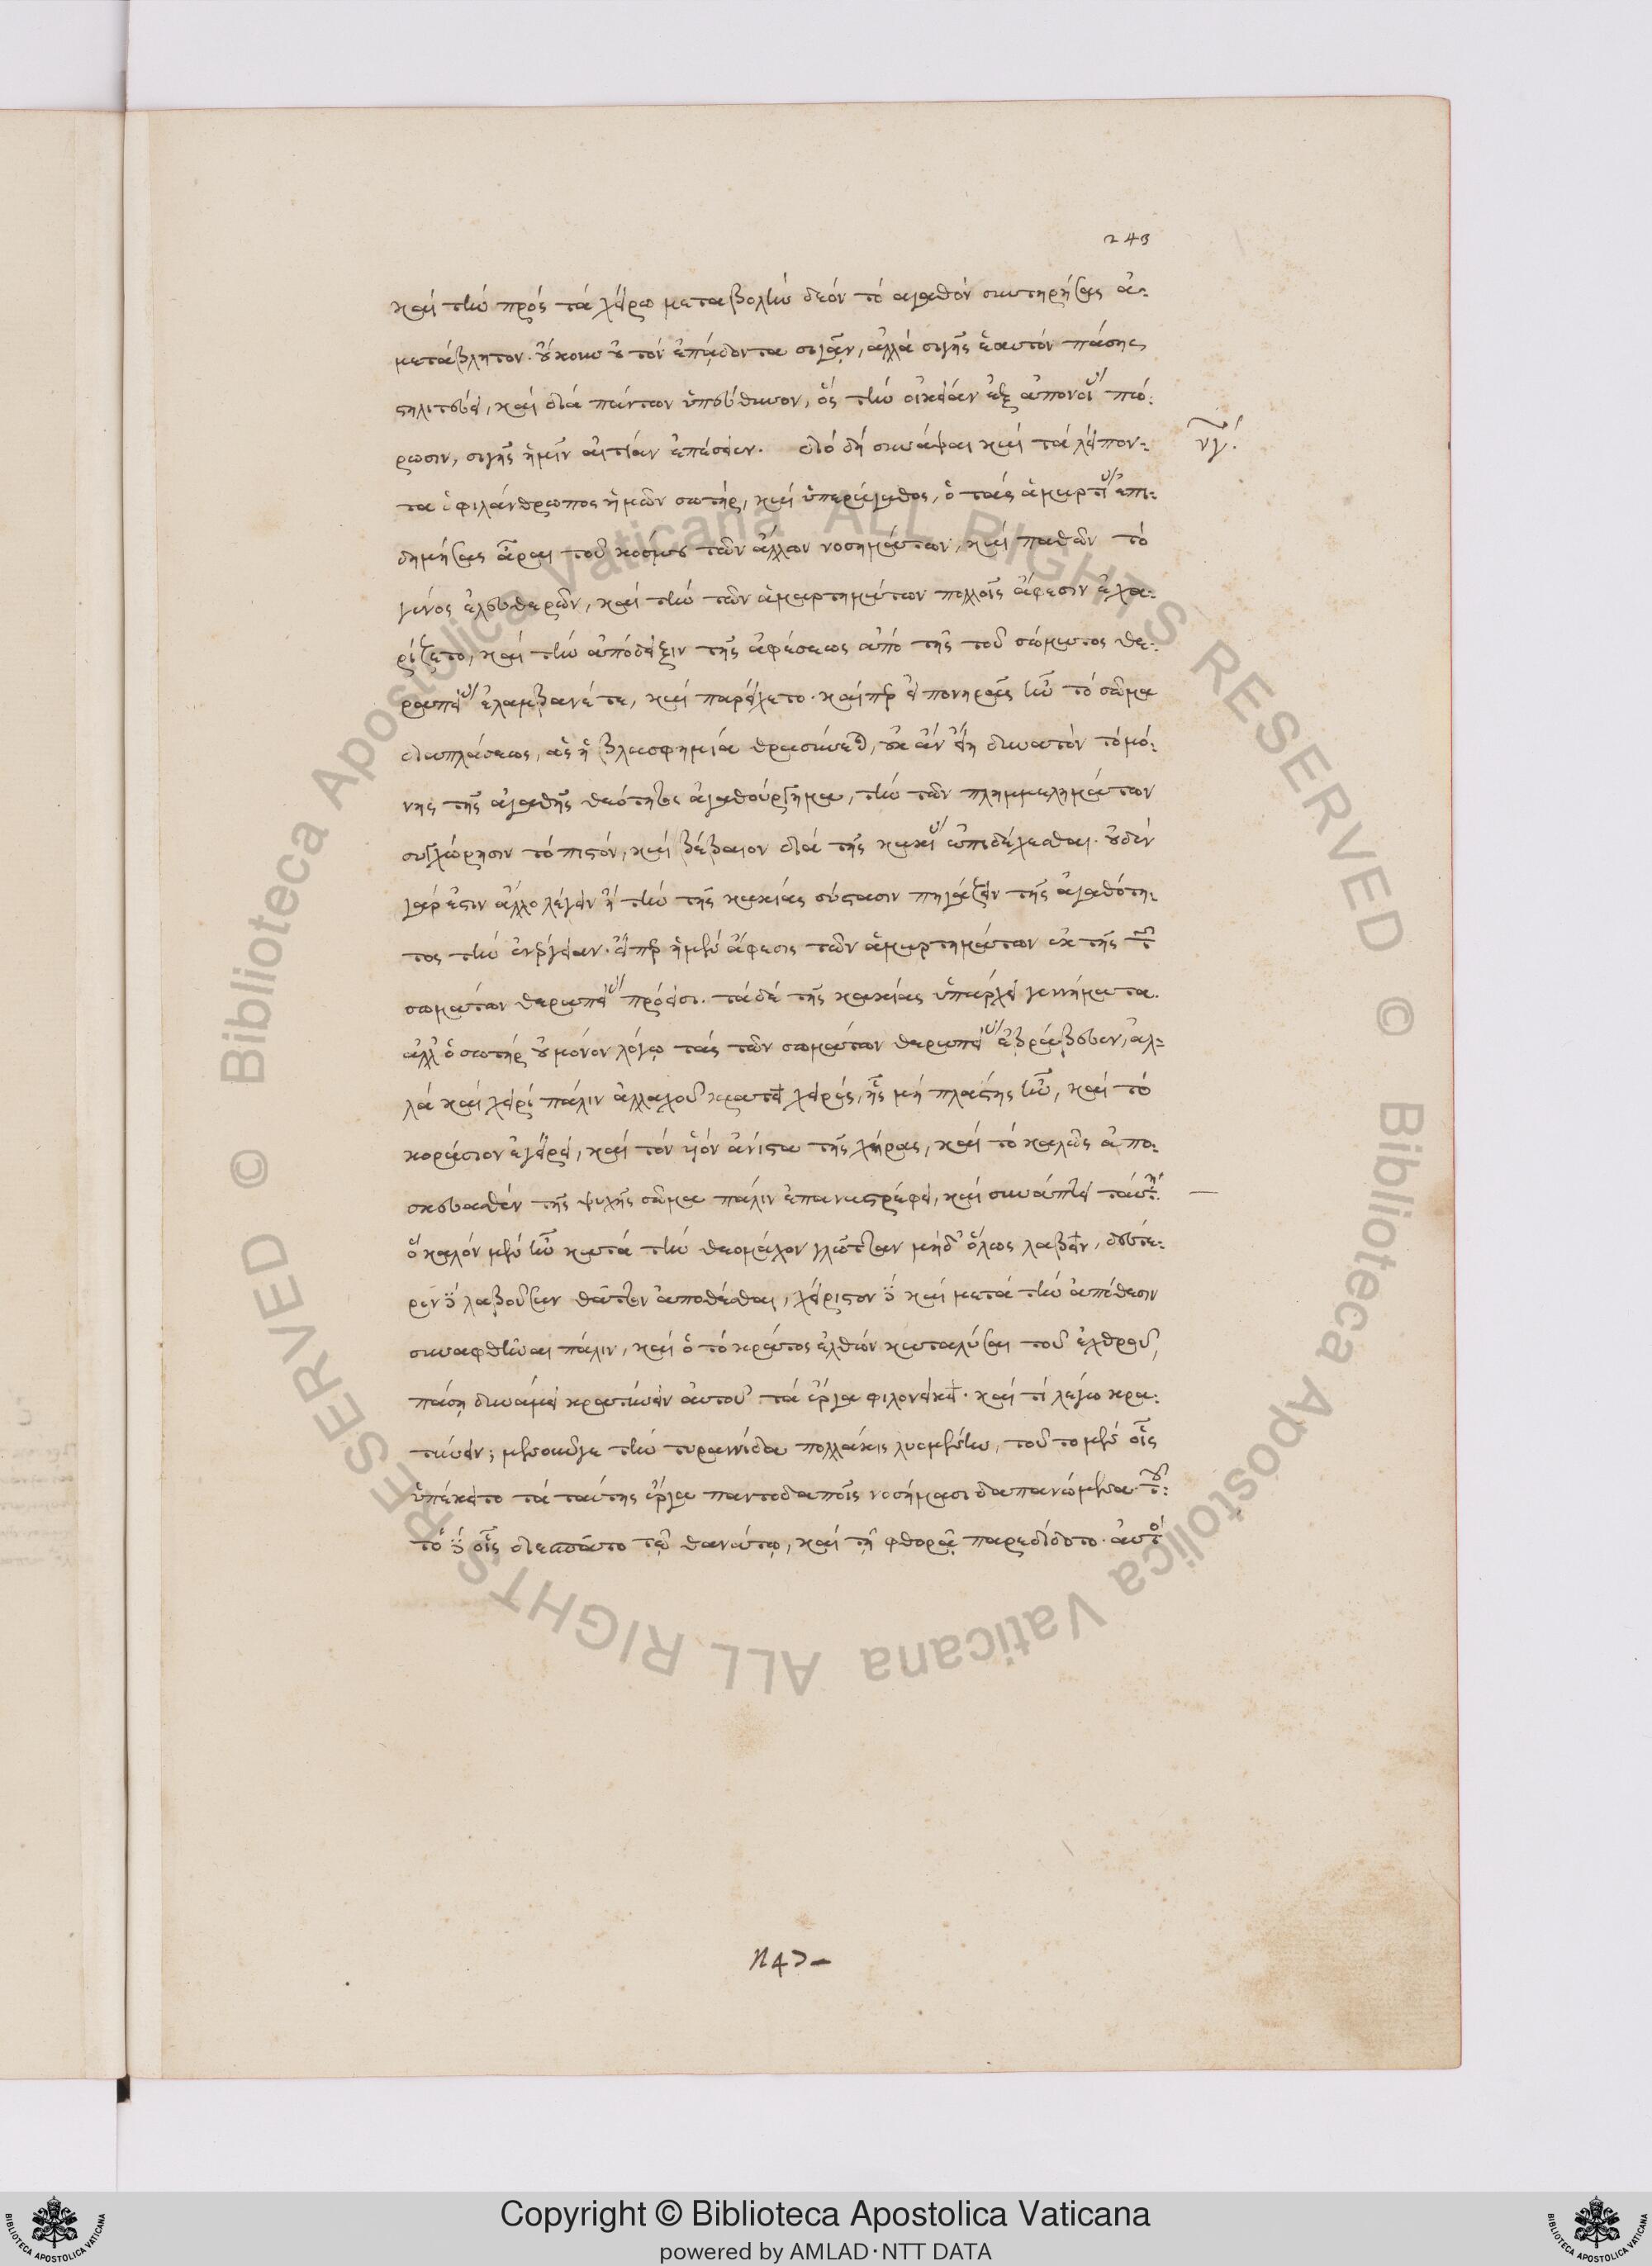 243
καὶ τὴν πρὸς τὰ χείρω μεταβολὴν δεόν τὸ ἀγαθὸν συντηρῆσαι ἀ-
μετάβλητον. οὔκουν οὐ τὸν ἐπᾴδοντα σιγᾶν, ἀλλὰ σιγῆς ἑαυτὸν πάσης
στηλιτεύει, καὶ διὰ πάντων ὑπεύθυνον, ὃς τὴν οἰκείαν ἐξ ἀπονοίας πώ-
ρωσιν, σιγῆς ἡμῖν αἰτίαν ἐπέσειεν. διὸ δὴ συνάψαι καὶ τὰ λείπον-
νγ.
τα ὁ φιλάνθρωπος ἡμῶν σωτὴρ, καὶ ὑπεράγαθος, ὁ τὰς ἁμαρτίας ἐπι-
δημήσας ἆραι τοῦ κόσμου τῶν ἄλλων νοσημάτων, καὶ παθῶν τὸ
γένος ἐλευθερῶν, καὶ τὴν τῶν ἁμαρτημάτων πολλοῖς ἄφεσιν ἐχα-
ρίζετο, καὶ τὴν ἀπόδειξιν τῆς ἀφέσεως ἀπὸ τῆς τοῦ σώματος θε-
ραπείας ἐλάμβανέ τε, καὶ παρείχετο. καίπερ εἰ πονηρᾶς ἦν τὸ σῶμα
διαπλάσεως, ὡς ἡ βλασφημία θρασύνεται, οὐκ ἂν εἴη δυνατὸν τὸ μό-
νης τῆς ἀγαθῆς θεότητος ἀγαθούργημα, τὴν τῶν πλημμελημάτων
συγχώρησιν τὸ πιστὸν, καὶ βέβαιον διὰ τῆς κακίας ἐπιδείχεσθαι. οὐδὲν
γάρ ἐστιν ἄλλο λέγειν ἢ τὴν τῆς κακίας σύστασιν πηγάζειν τῆς ἀγαθότη-
τος τὴν ἐνέργειαν. εἴπερ ἡ μὲν ἄφεσις τῶν ἁμαρτημάτων ἐκ τῆς τῶν
σωμάτων θεραπείας πρόεισι. τὰ δὲ τῆς κακίας ὑπάρχει γεννήματα.
ἀλλ' ὁ σωτὴρ οὐ μόνον λόγῳ τὰς τῶν σωμάτων θεραπείας ἐβράβευεν, ἀλ-
λὰ καὶ χειρὶ πάλιν ἀλλαχοῦ κρατεῖ χειρὸς, ἧς μὴ πλάστης ἦν, καὶ τὸ
κοράσιον ἐγείρει, καὶ τὸν υἱὸν ἀνίστα τῆς χήρας, καὶ τὸ καλῶς ἀπο-
σκευασθὲν τῆς ψυχῆς σῶμα πάλιν ἐπαναστρέφει, καὶ συνάπτει ταύτῃ.
ὃ καλὸν μὲν ἦν κατὰ τὴν θεομάχον γλῶτταν μηδ' ὅλως λαβεῖν, δεύτε-
ρον δὲ λαβοῦσαν θᾶττον ἀποθέσθαι, χείριστον δὲ καὶ μετὰ τὴν ἀπόθεσιν
συναφθῆναι πάλιν, καὶ ὁ τὸ κράτος ἐλθὼν καταλῦσαι τοῦ ἐχθροῦ,
πάσῃ δυνάμει κρατύνειν αὐτοῦ τὰ ἔργα φιλονεικεῖ. καὶ τί λέγω κρα-
τύνειν; μενοῦνγε τὴν τυραννίδα πολλάκις λυομένην, τοῦτο μὲν οἷς
ὑπέκειτο τὰ ταύτης ἔργα παντοδαποῖς νοσήμασι δαπανώμενα. τοῦ-
το δὲ οἷς διεσπᾶτο τῷ θανάτῳ, καὶ τῇ φθορᾷ παρεδίδοτο. αὐτὸς
Copyright © Biblioteca Apostolica Vaticana
powered by AMLAD·NTT DATA